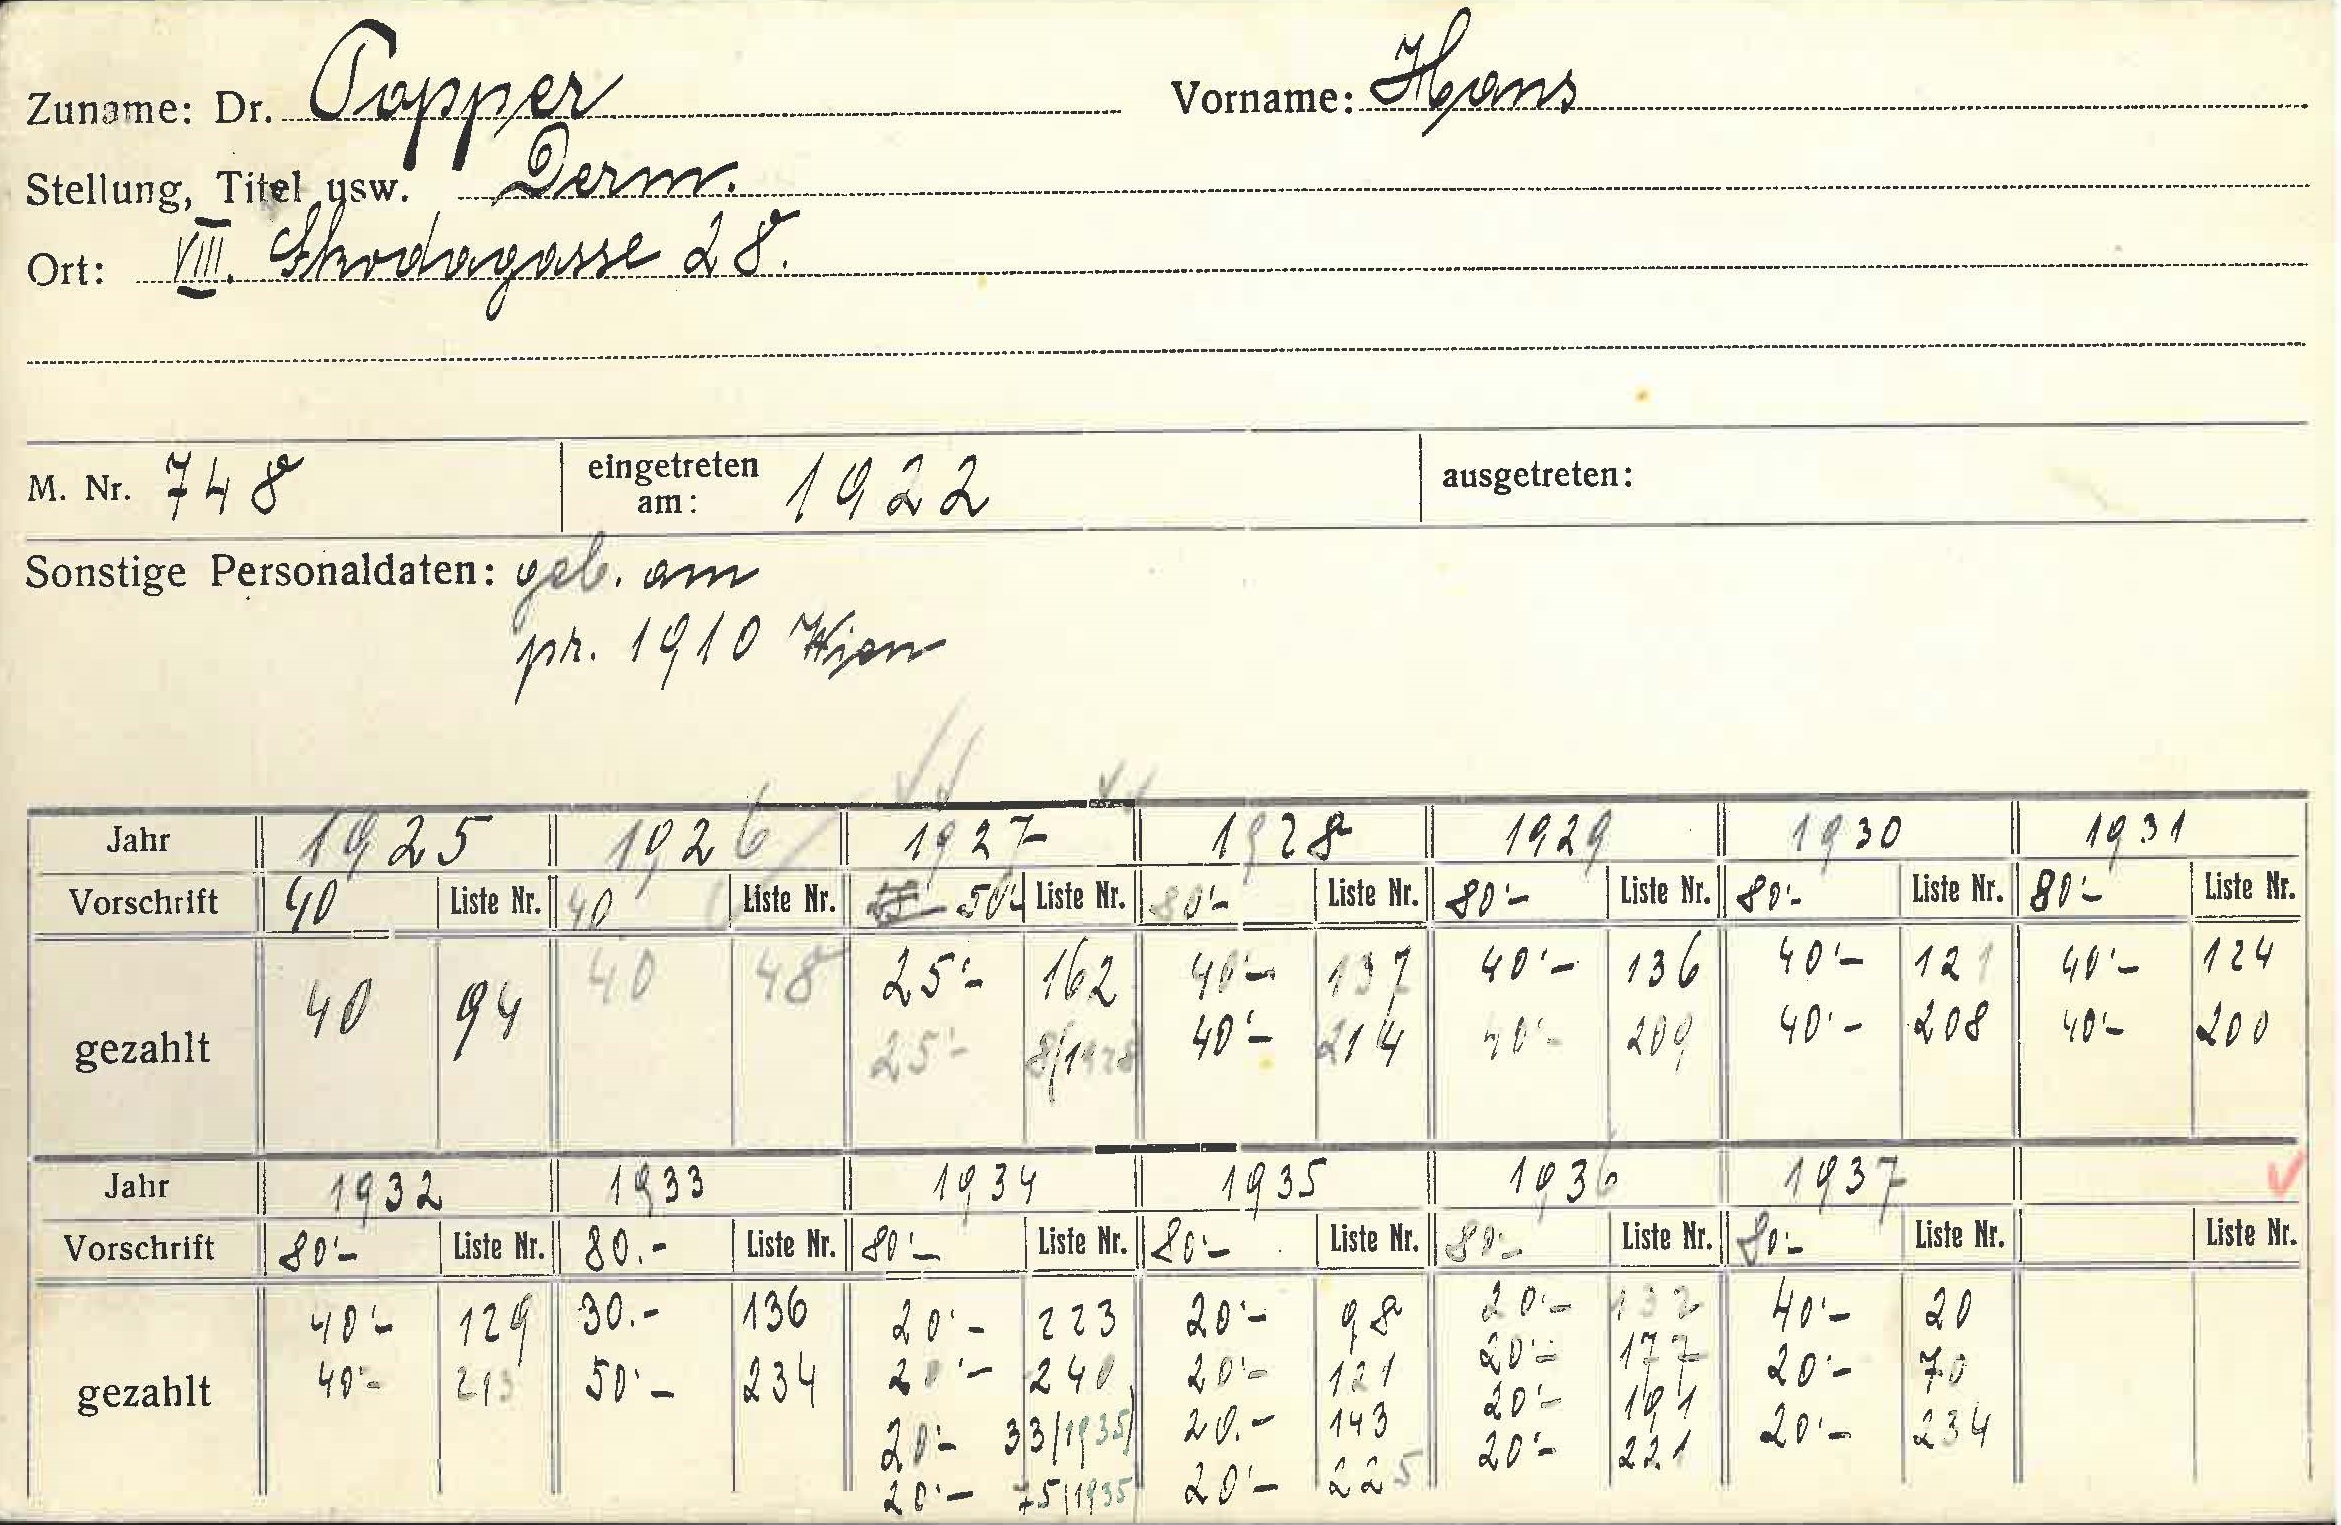 Zuname: Dr. Popper Vorname: Hans
Stellung, Titel usw. Derm.
Ort: VIII. Skodagasse 28.
M. Nr. 748 eingetreten am: 1922 ausgetreten:
Sonstige Personaldaten: geb. am
pr. 1910 Wien
Jahr 1925 1926 1927 1928 1929 1930 1931
Vorschrift 40 Liste Nr. 40 Liste Nr. 50'- Liste Nr. 80'- Liste Nr. 80'- Liste Nr. 80'- Liste Nr. 80'- Liste Nr.
gezahlt 40 94 40 48 25'- 162 40'- 137 40'- 136 40'- 121 40'- 124
25'- 8/1928 40'- 214 40'- 209 40'- 208 40'- 200
Jahr 1932 1933 1934 1935 1936 1937
Vorschrift 80'- Liste Nr. 80.- Liste Nr. 80'- Liste Nr. 80'- Liste Nr. 80'- Liste Nr. 80'- Liste Nr. Liste Nr.
gezahlt 40'- 129 30.- 136 20'- 223 20'- 98 20'- 132 40'- 20
40'- 213 50'- 234 20'- 240 20'- 121 20'- 177 20'- 70
20'- 33/1935/ 20.- 143 20'- 191 20'- 234
20'- 75/1935 20'- 225 20'- 221